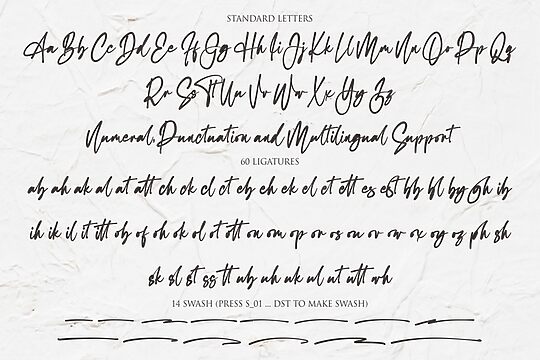 STANDARD LETTERS
Aa Bb Cc Dd Ee Ff Gg Hh Ii Jj Kk Ll Mm Nn Oo Pp Qq
Rr Ss Tt Uu Vv Ww Xx Yy Zz
Numeral, Punctuation and Multilingual Support
60 LIGATURES
ab ah ak al at att ch ck cl ct eb eh ek el et ett es est bb bl by gh ib
ih ik il it itt ob of oh ok ol ot ott on om op or os ou ov ow ox oy oz ph sh
sk sl st ss tt ub uh uk ul ut utt wh
14 SWASH (PRESS S_01 ... DST TO MAKE SWASH)